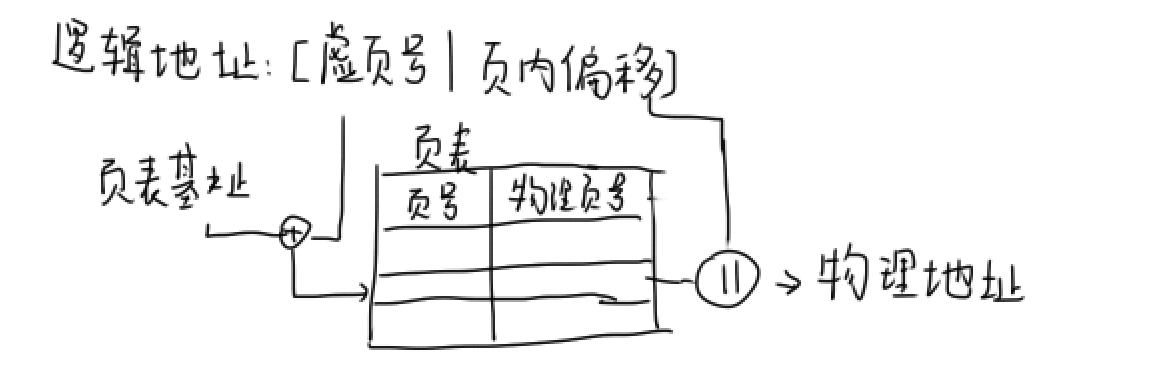 逻辑地址:[虚页号|页内偏移]
页表
页表基址
页号 物理页号
+
|| → 物理地址